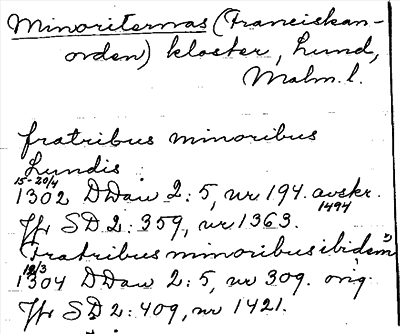 Minoriternas (Franciskan-
orden) kloster, Lund,
Malm. l.
fratribus minoribus
Lundis
15-20/4
1302 DDan 2:5, nr 194. avskr.
1494
Jfr SD 2:359, nr 1363.
Fratribus minoribus ibidem
12/3
1304 DDan 2:5, nr 309. orig.
Jfr SD 2:409, nr 1421.